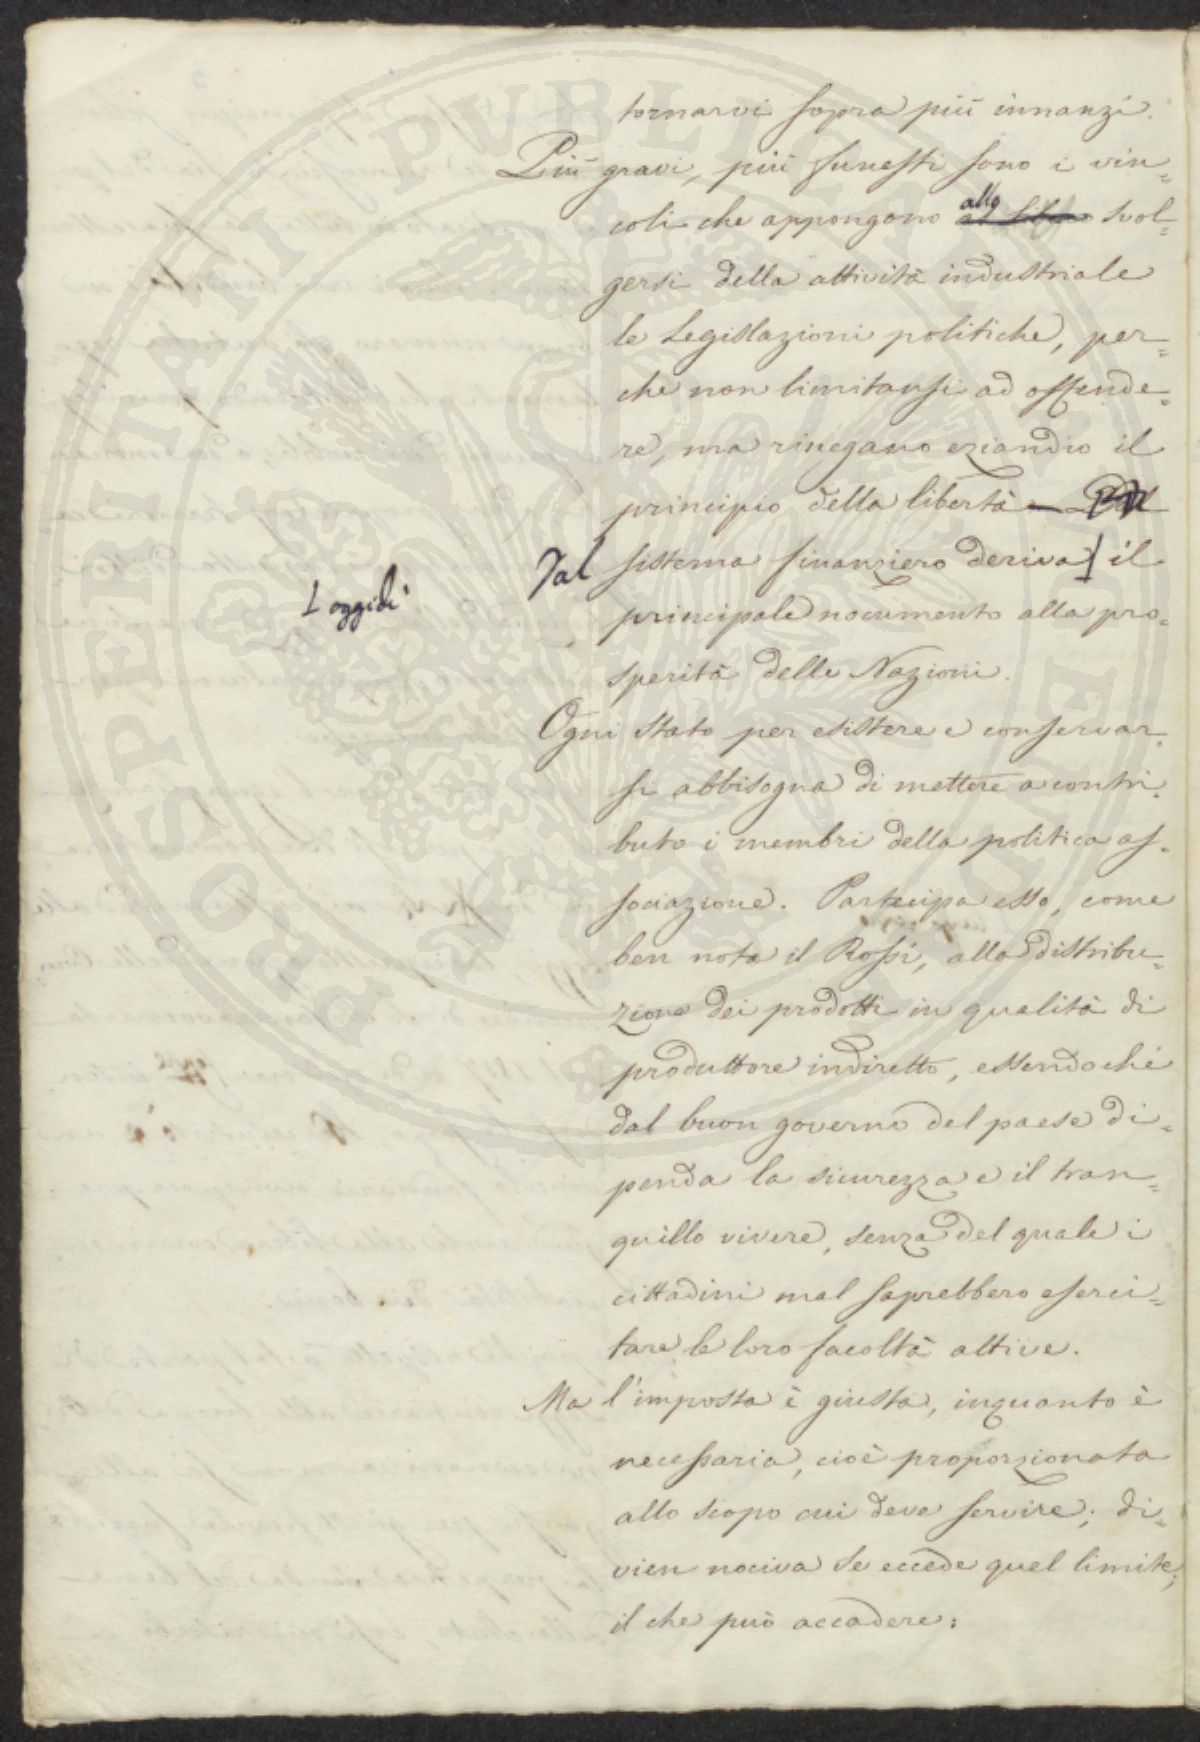 tornarvi sopra più innanzi.
Più gravi, più funesti sono i vin=
coli che appongono allo svol=
gersi della attività industriale
le Legislazioni politiche, per=
che non limitansi ad offende=
re, ma rinegano eziandio il
principio della libertà —
Dal sistema finanziero deriva ⌉ il
⌊ oggidì
principale nocumento alla pro=
sperità delle Nazioni.
Ogni stato per esistere e conservar=
si abbisogna di mettere a contri=
buto i membri della politica as=
sociazione. Partecipa esso, come
ben nota il Rossi, alla distribu=
zione dei prodotti in qualità di
produttore indiretto, essendochè
dal buon governo del paese di=
penda la sicurezza e il tran=
quillo vivere, senza del quale i
cittadini mal saprebbero eserci=
tare le loro facoltà attive.
Ma l'imposta è giusta, inquanto è
necessaria, cioè proporzionata
allo scopo cui deve servire; di=
vien nociva se eccede quel limite;
il che può accadere:
PROSPERITATI PUBLICAE